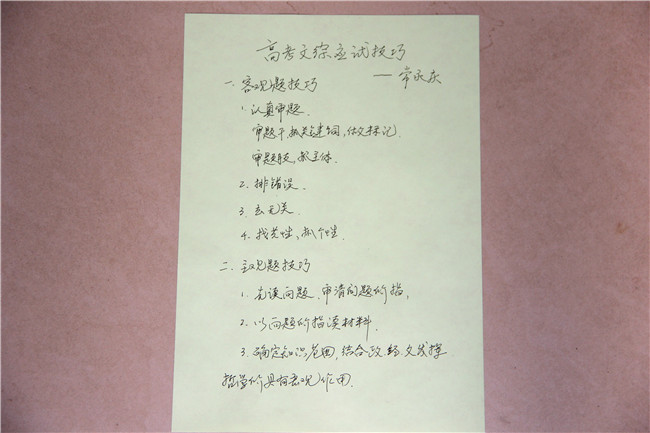 高考文综应试技巧
——常永庆
一、客观题技巧
1.认真审题.
审题干,抓关键词,做标记.
审题肢,抓主体.
2.排错误.
3.去无关.
4.找共性,抓个性.
二、主观题技巧
1.先读问题.审清问题价指,
2.以问题价指读材料.
3.确定知识范围,结合政.经.文发挥
哲学价具有客观作用.